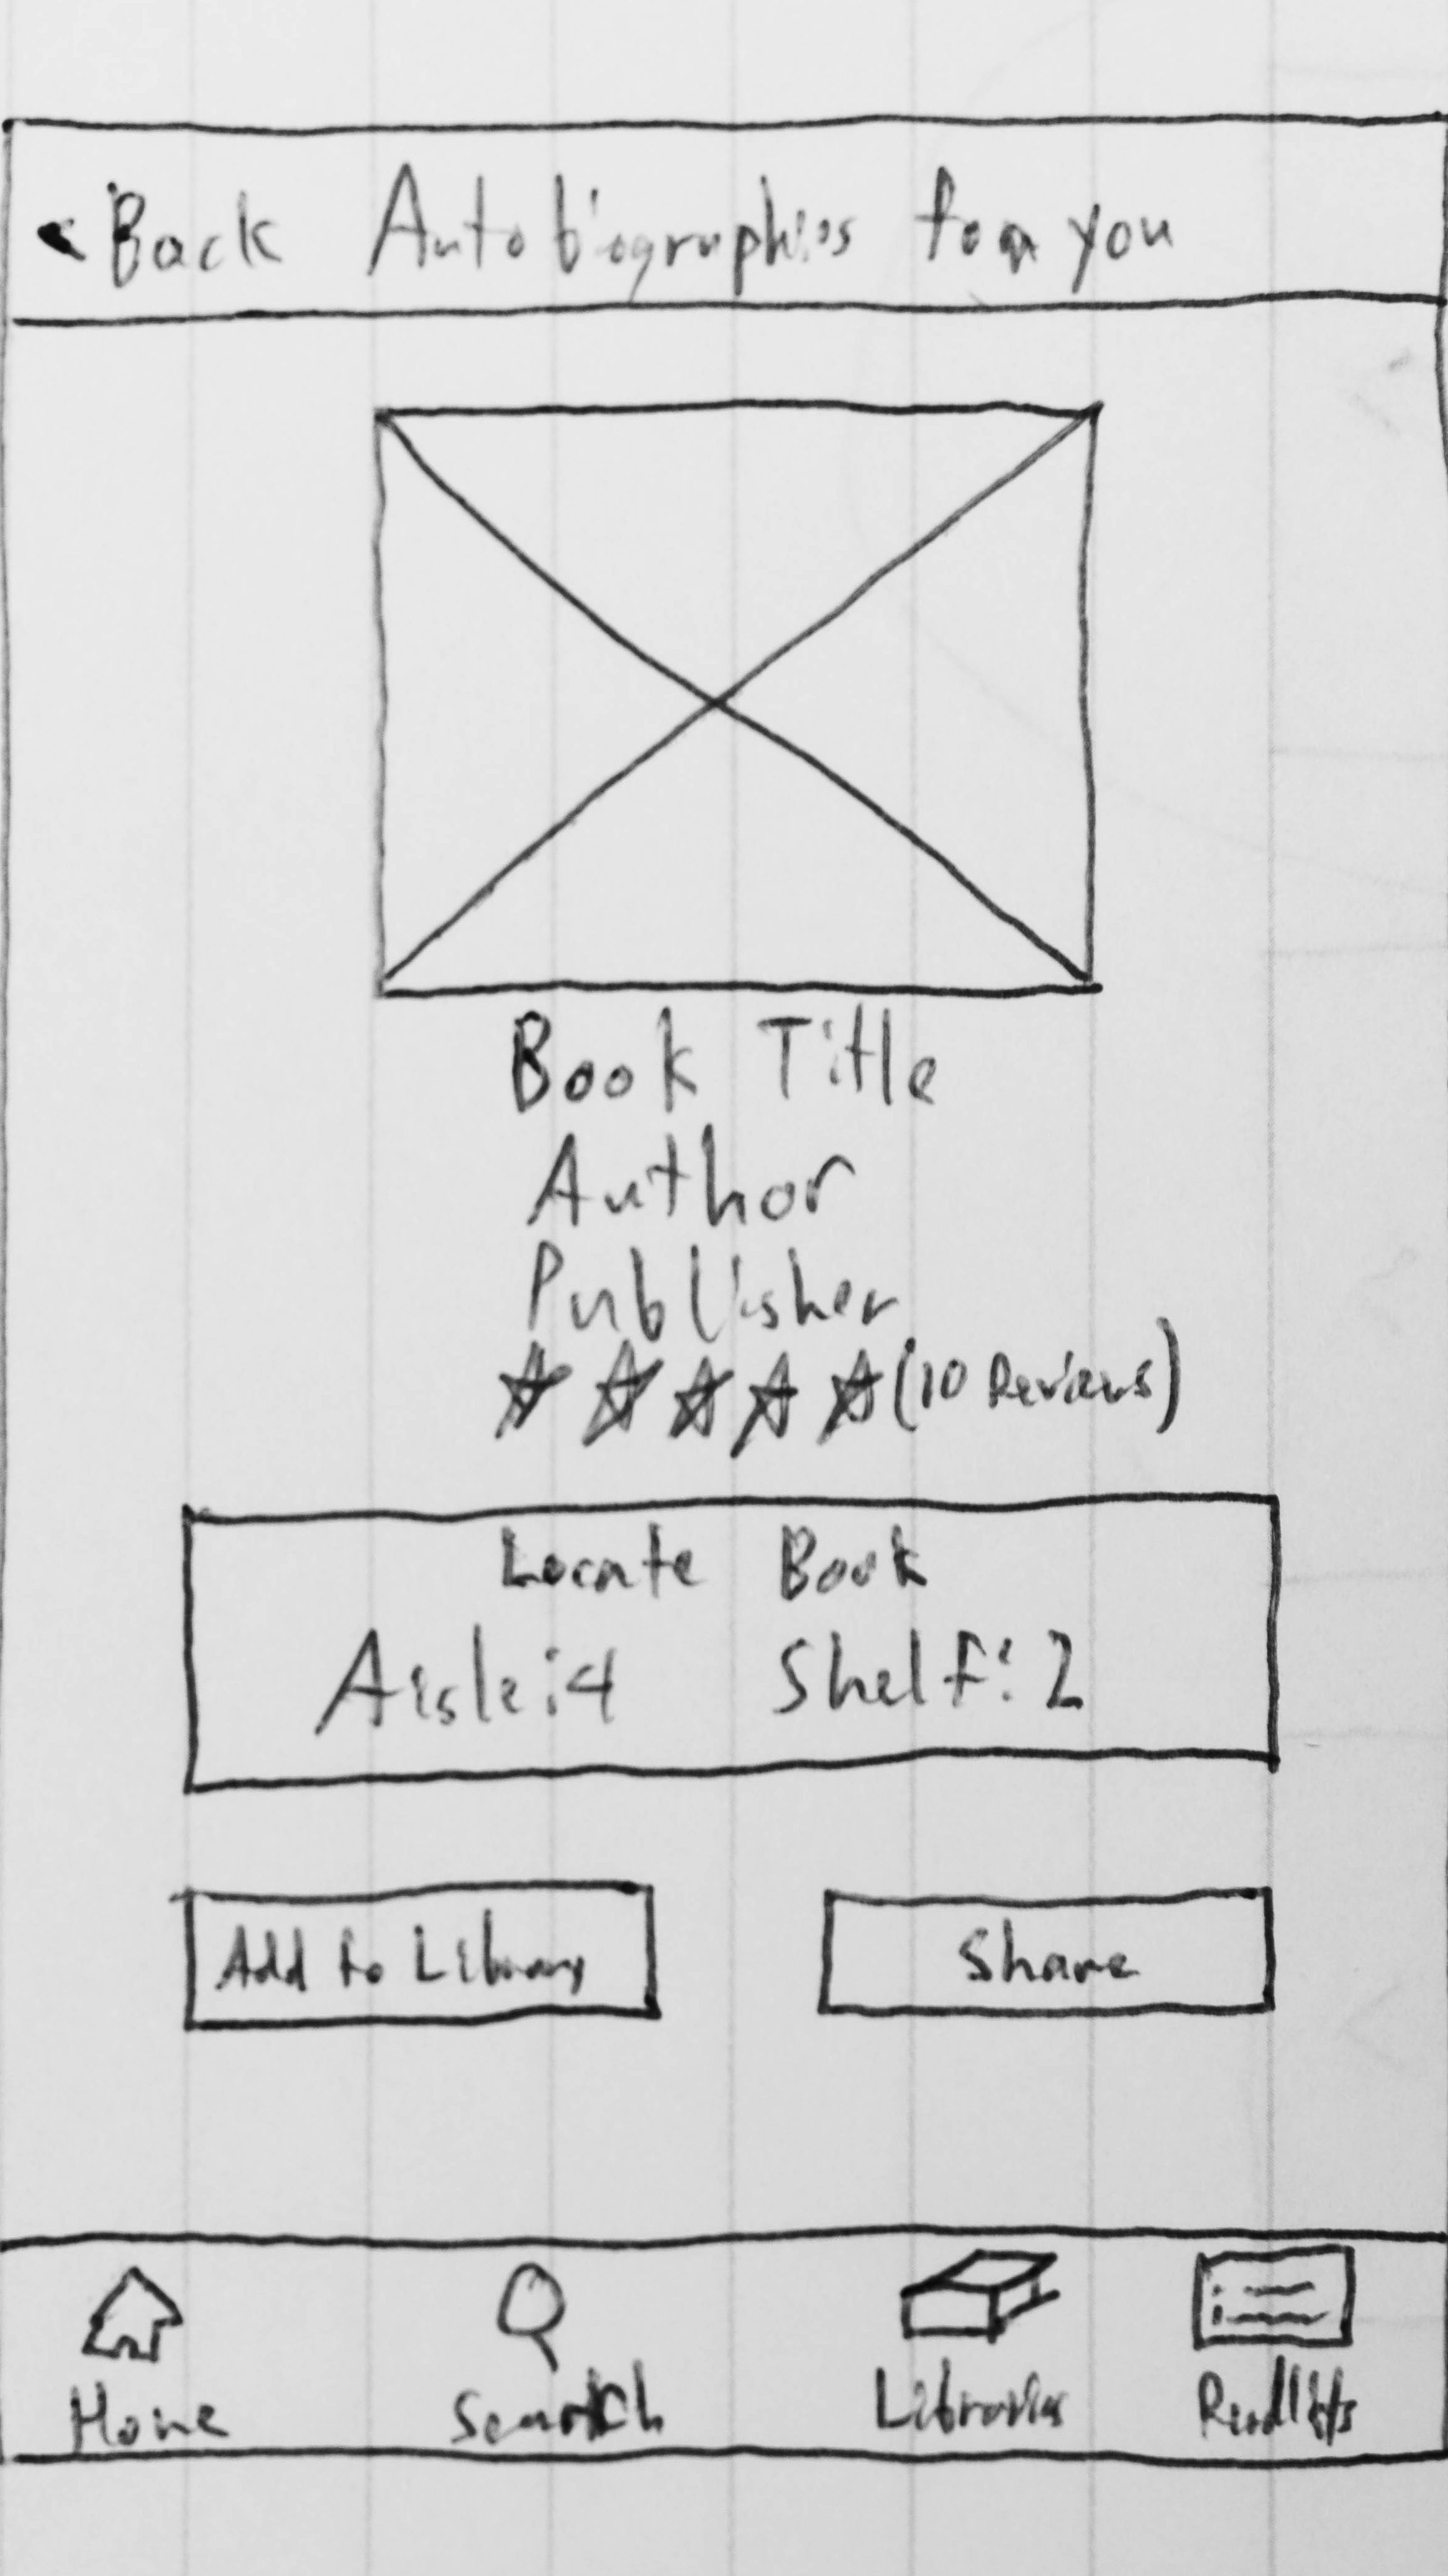 Back Autobiographies for you
Book Title
Author
Publisher
(10 Reviews)
Locate Book
Aisle:4 Shelf:2
Add to Library Share
Home Search Libraries Readlists